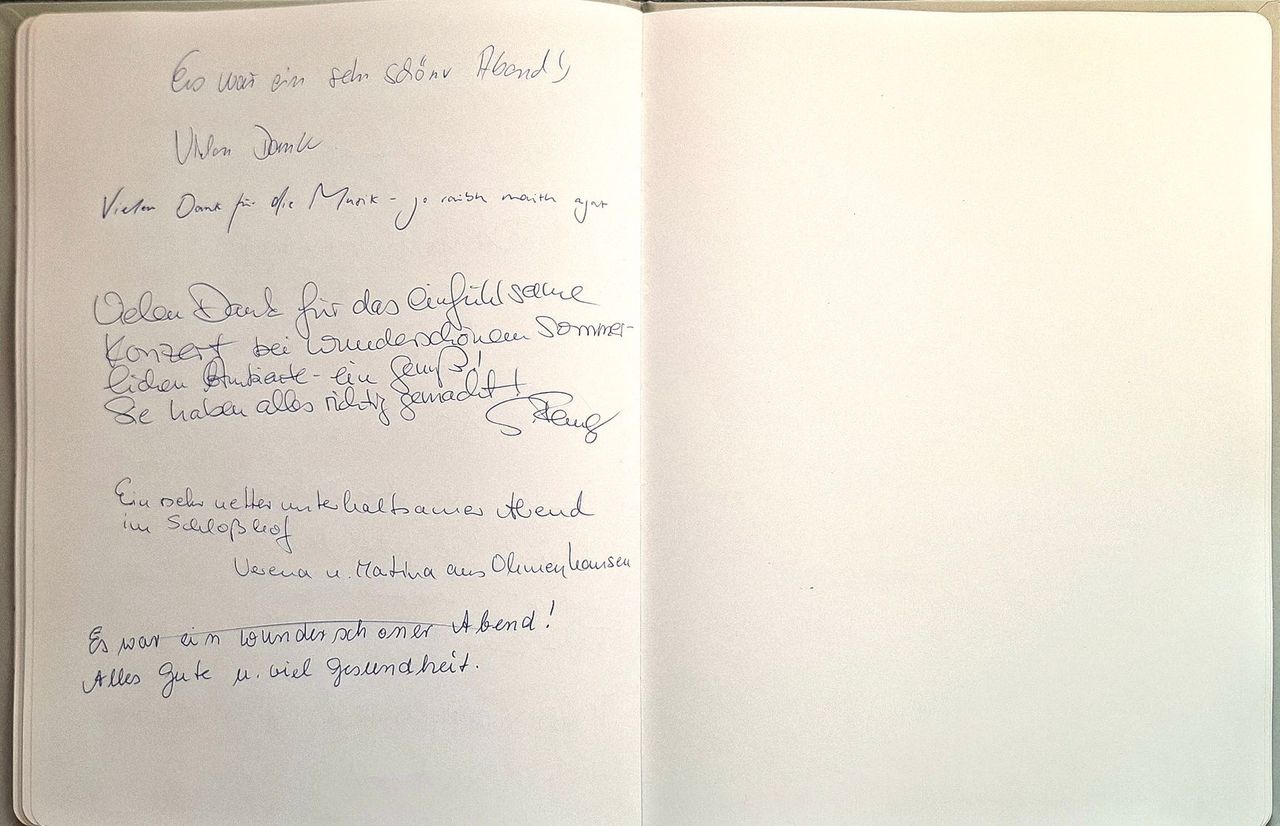 Es war ein sehr schöner Abend!
Vielen Dank
Vielen Dank für die Musik - go raibh maith agat
Vielen Dank für das einfühlsame
Konzert bei wunderschönem Sommer-
lichen Ambiente - ein Genuß!
Sie haben alles richtig gemacht!
Ein sehr netter unterhaltsamer Abend
im Schloßhof
Verena u. Martina aus Ohmenhausen
Es war ein wunderschöner Abend!
Alles Gute u. viel Gesundheit.